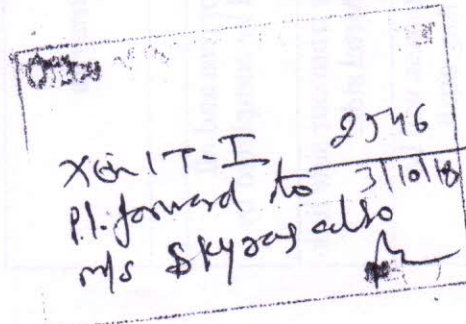 2546
3/10/18
XEn IT-I
Pl. forward to
m/s Skyras also